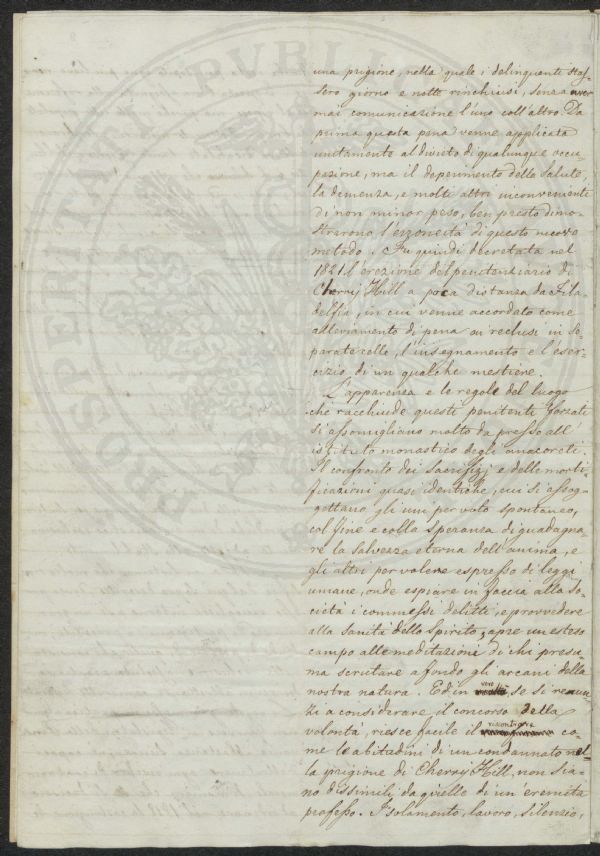 una prigione, nella quale i delinquenti stas-
sero giorno e notte rinchiusi, senza aver
mai comunicazione l'uno coll'altro. Da
prima questa pena venne applicata
unitamente al divieto di qualunque occu-
pazione, ma il deperimento della salute,
la demenza, e molti altri inconvenienti
di non minor peso, ben presto dimo-
strarono l'erroneità di questo nuovo
metodo. Fu quindi decretata nel
1821 l'erezione del penitenziario di
Cherry Hill a poca distanza da Fila-
delfia, in cui venne accordato come
alleviamento di pena ai reclusi in se-
parate celle, l'insegnamento e l'eser-
cizio di un qualche mestiere.
L'apparenza e le regole del luogo
che racchiude questi penitenti forzati
si assomigliano molto da presso all'
istituto monastico degli anacoreti.
Il confronto dei sacrifizj e delle morti-
ficazioni quasi identiche, cui si assog-
gettano gli uni per voto spontaneo,
col fine e colla speranza di guadagna-
re la salvezza eterna dell'anima, e
gli altri per volere espresso di leggi
umane, onde espiare in faccia alla so-
cietà i commessi delitti, e provvedere
alla sanità dello spirito, apre un esteso
campo alle meditazioni di chi presu-
ma scrutare a fondo gli arcani della
nostra natura. Ed in vero se si renun-
zi a considerare il concorso della
volontà, riesce facile il riscontrare co-
me le abitudini di un condannato nel-
la prigione di Cherry Hill, non sia-
no dissimili da quelle di un'eremita
professo. Isolamento, lavoro, silenzio,
PROSPERITATI PVBLICAE